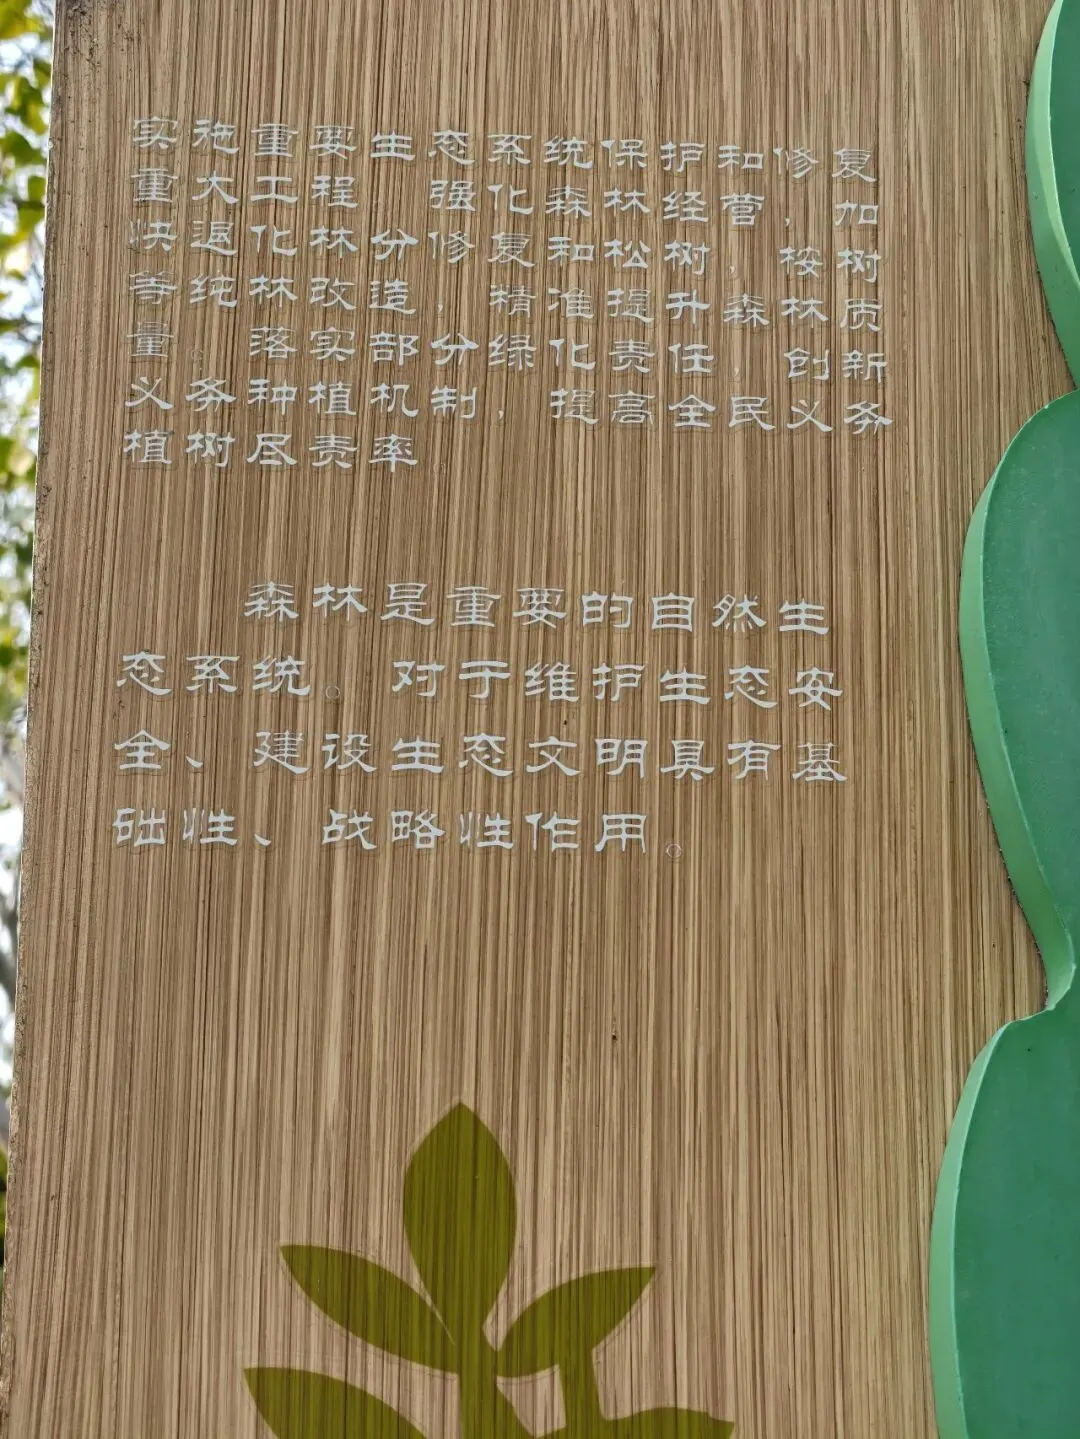 实施重要生态系统保护和修复
重大工程 强化森林经营，加
快退化林分修复和松树，桉树
等纯林改造，精准提升森林质
量。落实部分绿化责任 创新
义务种植机制，提高全民义务
植树尽责率
森林是重要的自然生
态系统。对于维护生态安
全、建设生态文明具有基
础性、战略性作用。